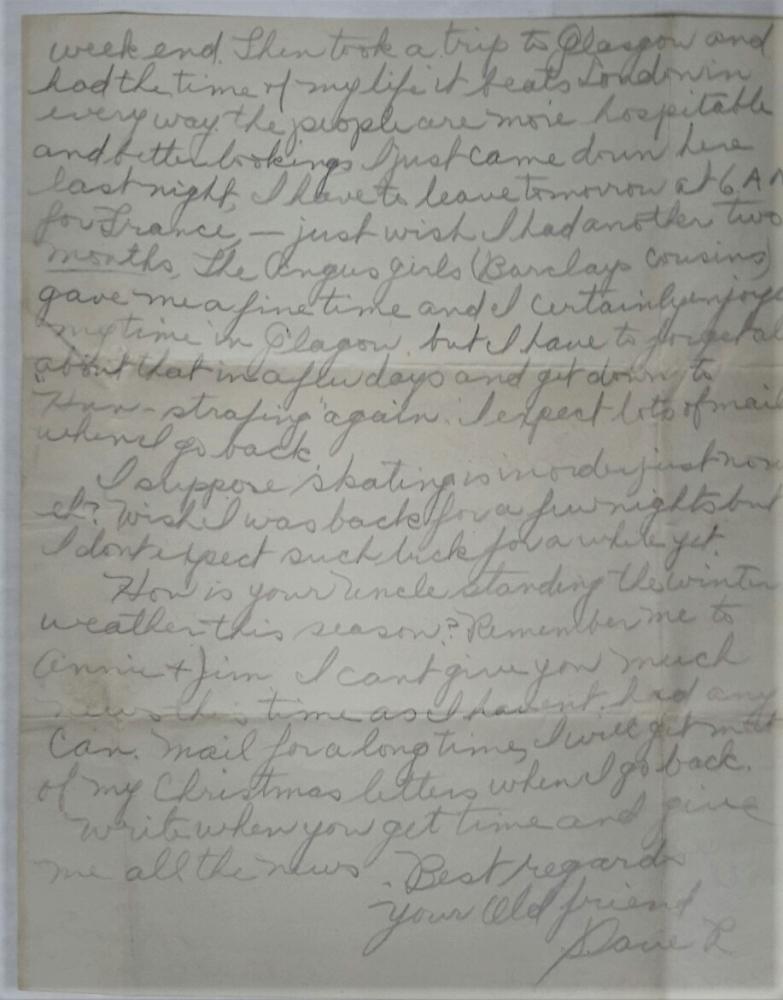 week end. Then took a trip to Glasgow and
had the time of my life it beats London in
every way. the people are more hospitable
and better looking. I just came down here
last night, I have to leave tomorrow at 6 A M
for France, — just wish I had another two
months. The Angus girls (Barclays cousins)
gave me a fine time and I certainly enjoye
my time in Glagow. but I have to forget al
about that in a few days and get down to
"Hun-strafing" again. I expect lots of mail
when I go back
I suppose skating is in order just now
eh? Wish I was back for a few nights but
I dont expect such luck for a while yet.
How is your Uncle standing the winter
weather this season? Remember me to
Annie + Jim I cant give you much
news this time as I havent had any
Can. mail for a long time, I will get
of my Christmas letters when I go back.
Write when you get time and give
me all the news. Best regards
Your Old friend
Dave R